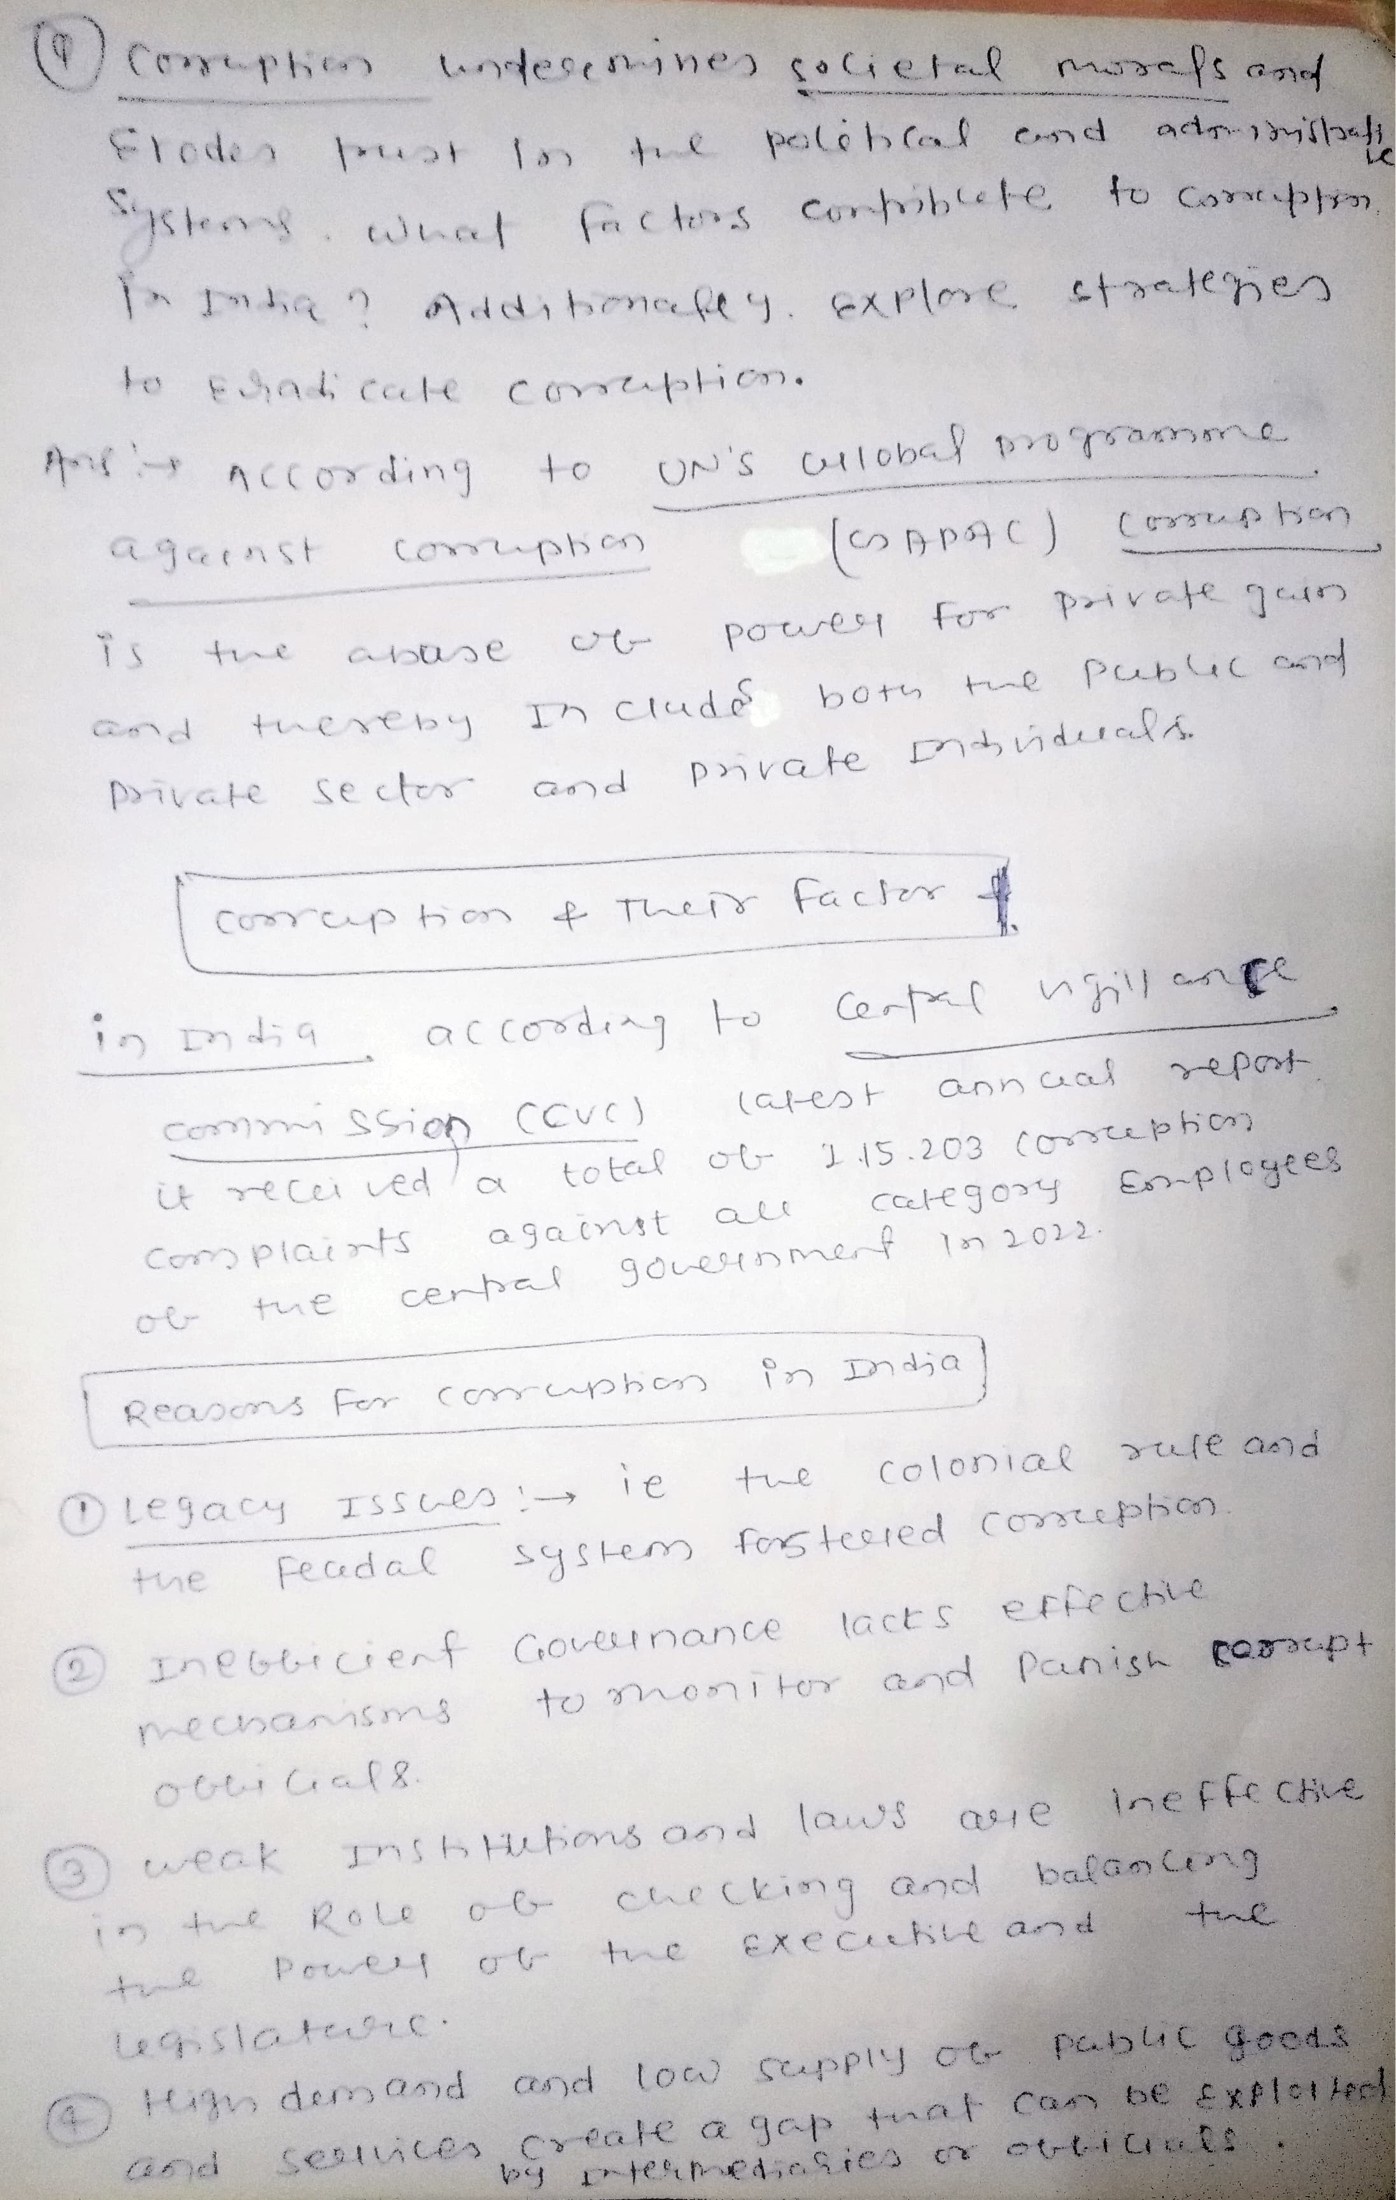 (9) Corruption undermines societal morals and
Erodes trust in the political and administrative
Systems. What factors contribute to corruption
In India? Additionally. Explore strategies
to Eradicate corruption.
Ans:→ According to UN's Global programme
against corruption (GAPAC) Corruption
is the abuse of power for private gain
and thereby Includes both the public and
private sector and private Individuals.
Corruption & Their Factor
in India according to Central vigillance
commission (CVC) latest annual report
it received a total of 1.15.203 corruption
complaints against all category Employees
of the central government in 2022.
Reasons For corruption in India
① Legacy Issues:→ ie the colonial rule and
the Feudal system forstered corruption.
② Inefficient Governance lacks effective
mechanisms to monitor and Punish corrupt
officials.
③ weak Institutions and laws are Ineffective
in the Role of checking and balancing
the Power of the Executive and the
legislature.
④ High demand and low supply of public goods
and services create a gap that can be Exploited
by intermediaries or officials.